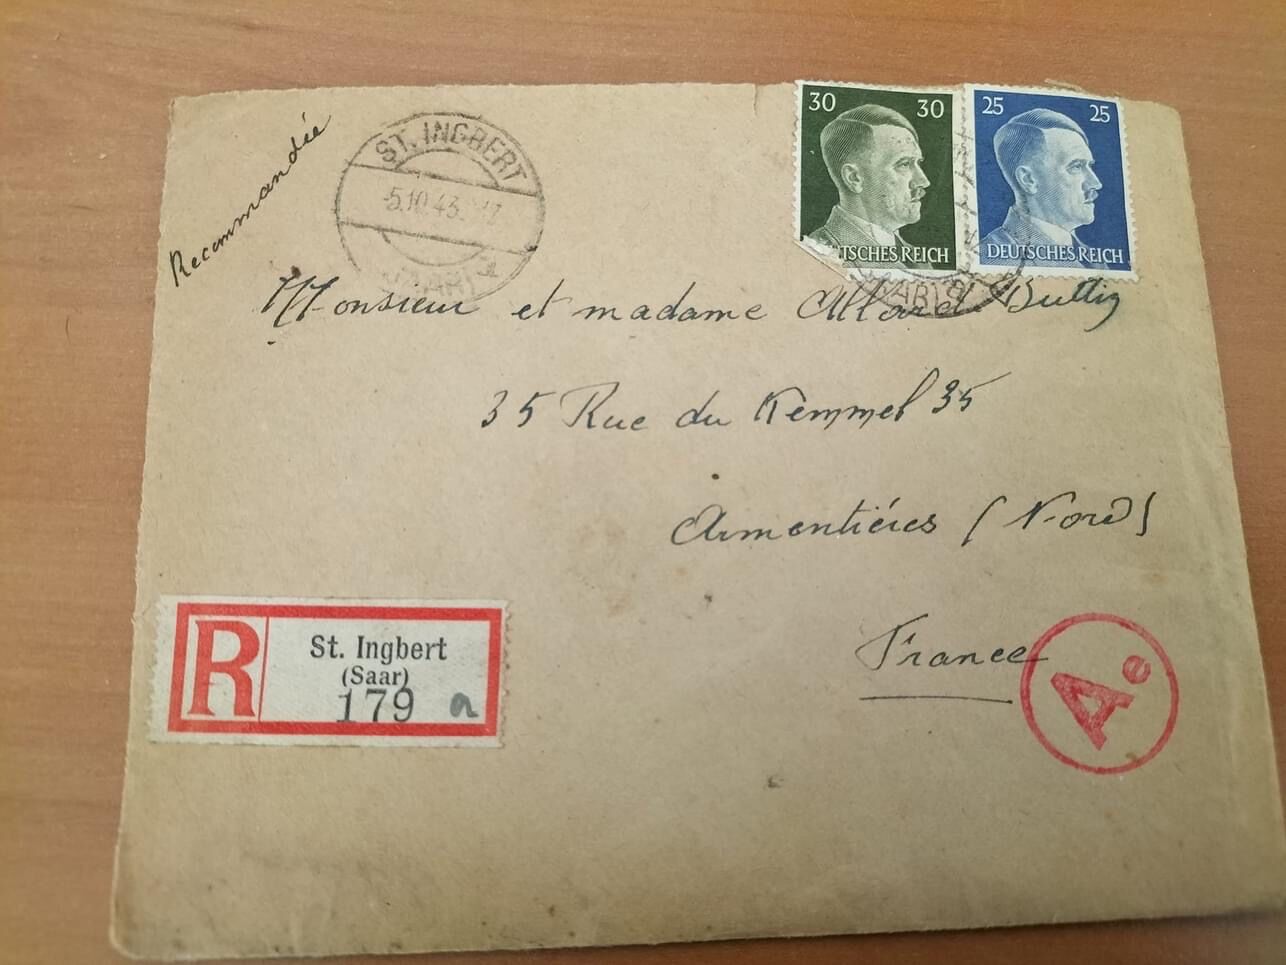 Recommandée
ST. INGBERT
-5.10.43.
(SAAR)
30 30
DEUTSCHES REICH
25 25
DEUTSCHES REICH
(SAAR)
Monsieur et madame Allard
35 Rue du Kemmel 35
Armentiéres (Nord)
France
Ae
R
St. Ingbert
(Saar)
179 a